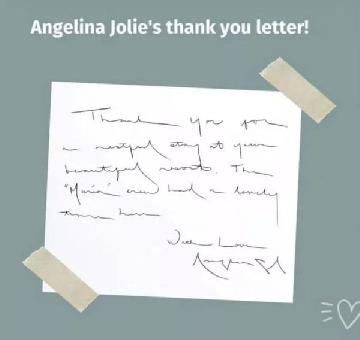 Angelina Jolie's thank you letter!
Thank you for
a restful stay at your
beautiful resort. The
"Maria" crew had a lovely
time here
With Love